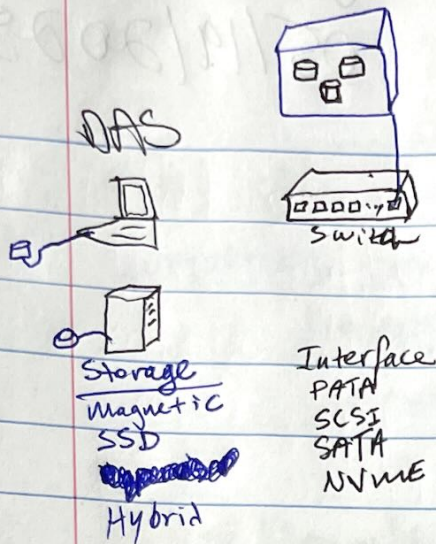 DAS
Switch
Storage
Magnetic
SSD
Hybrid
Interface
PATA
SCSI
SATA
NVME